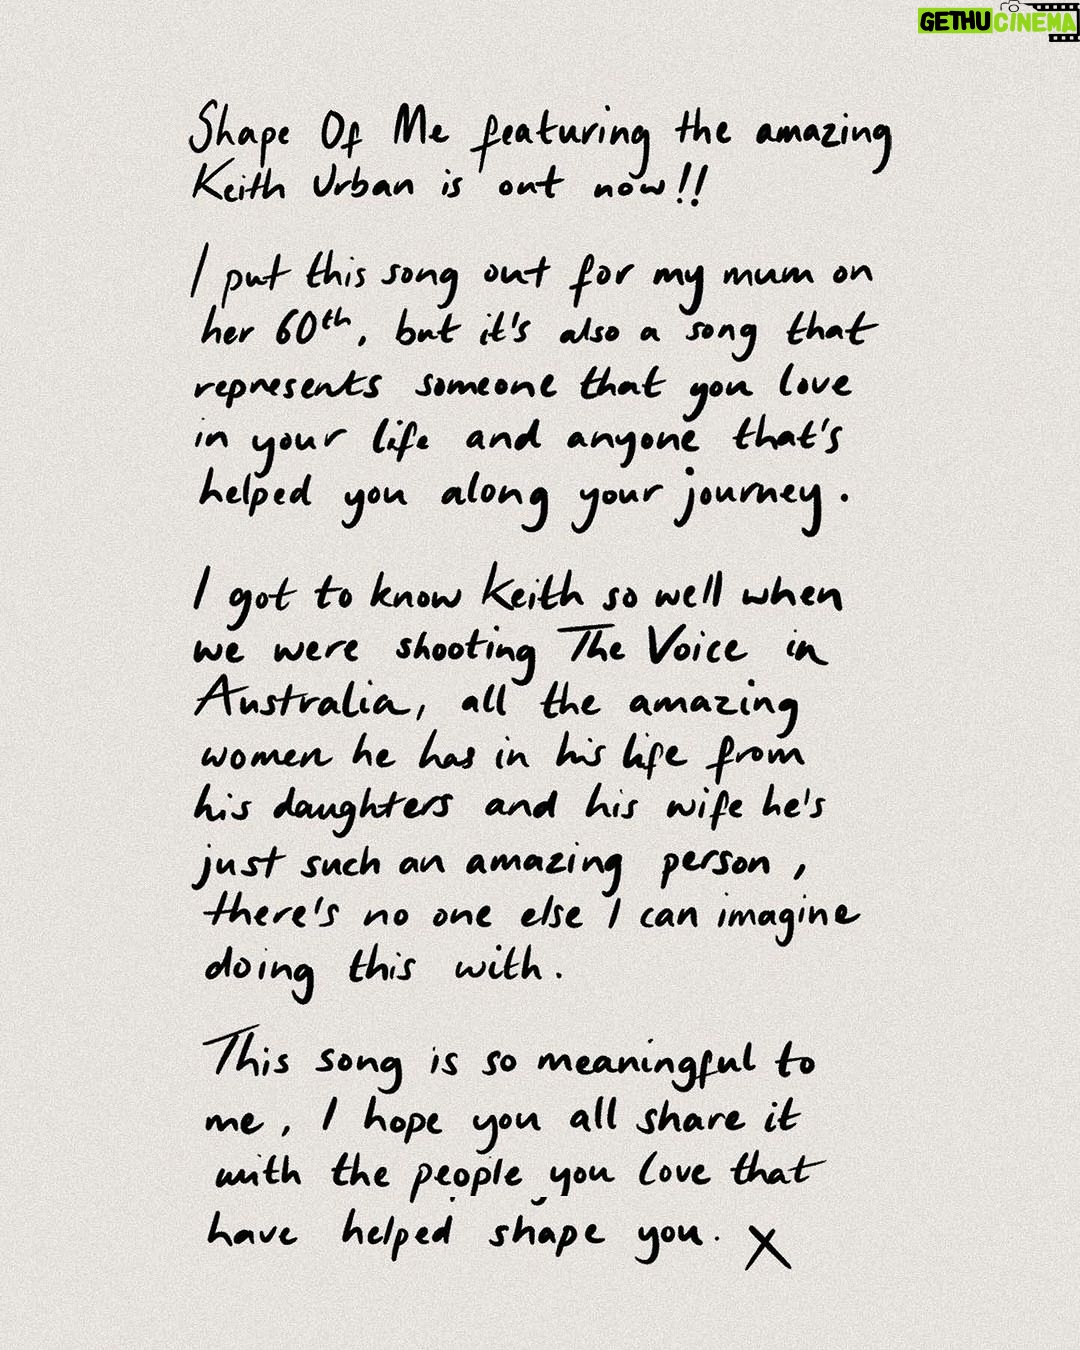 GETHU CINEMA
Shape Of Me featuring the amazing
Keith Urban is out now!!
I put this song out for my mum on
her 60th, but it's also a song that
represents someone that you love
in your life and anyone that's
helped you along your journey.
I got to know Keith so well when
we were shooting The Voice in
Australia, all the amazing
women he has in his life from
his daughters and his wife he's
just such an amazing person,
there's no one else I can imagine
doing this with.
This song is so meaningful to
me, I hope you all share it
with the people you love that
have helped shape you. X